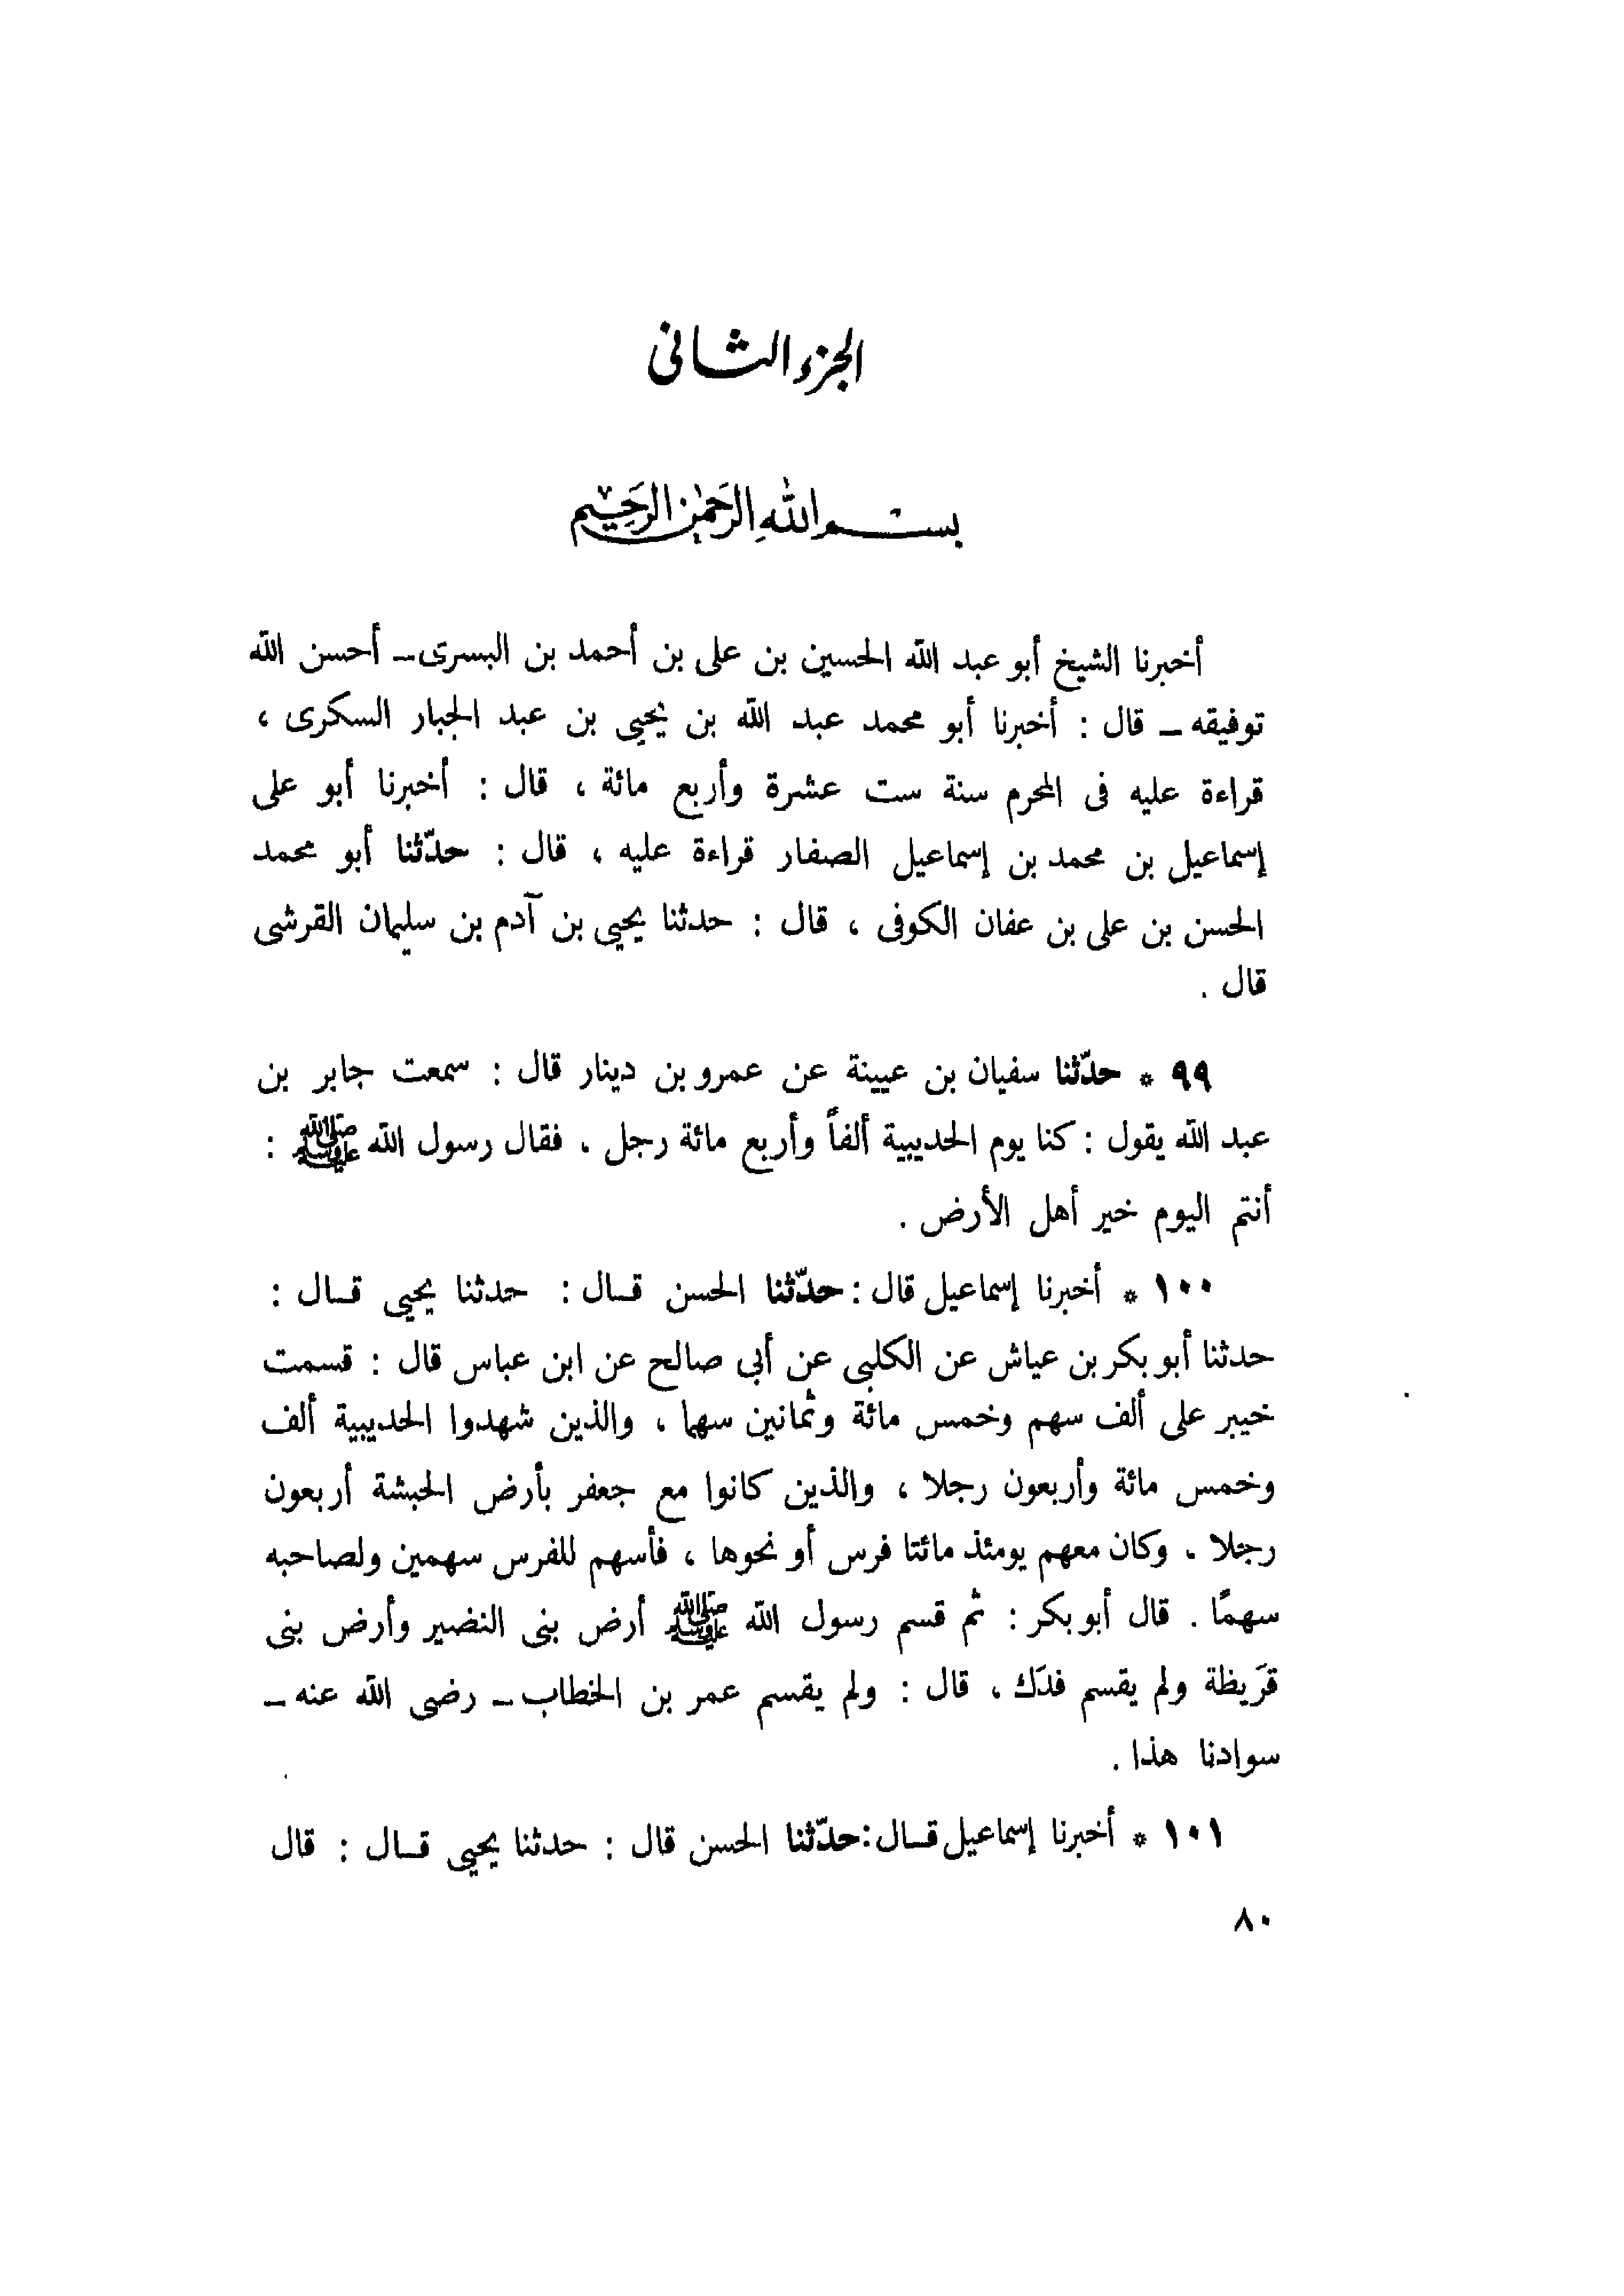 الجزء الثانى
بسم الله الرحمن الرحيم
أخبرنا الشيخ أبو عبد الله الحسين بن على بن أحمد بن البسرى ــ أحسن الله
توفيقه ــ قال : أخبرنا أبو محمد عبد الله بن يحيى بن عبد الجبار السكرى ،
قراءة عليه فى المحرم سنة ست عشرة وأربع مائة ، قال : أخبرنا أبو على
إسماعيل بن محمد بن إسماعيل الصفار قراءة عليه ، قال : حدّثنا أبو محمد
الحسن بن على بن عفان الكوفى ، قال : حدثنا يحيى بن آدم بن سليمان القرشى
قال .
٩٩ * حدّثنا سفيان بن عيينة عن عمرو بن دينار قال : سمعت جابر بن
عبد الله يقول : كنا يوم الحديبية ألفاً وأربع مائة رجل ، فقال رسول الله ﷺ :
أنتم اليوم خير أهل الأرض .
١٠٠ * أخبرنا إسماعيل قال : حدّثنا الحسن قـال : حدثنا يحيى قـال :
حدثنا أبو بكر بن عياش عن الكلبى عن أبى صالح عن ابن عباس قال : قسمت
خيبر على ألف سهم وخمس مائة وثمانين سهما ، والذين شهدوا الحديبية ألف
وخمس مائة وأربعون رجلا ، والذين كانوا مع جعفر بأرض الحبشة أربعون
رجلا ، وكان معهم يومئذ مائتا فرس أو نحوها ، فأسهم للفرس سهمين ولصاحبه
سهمًا . قال أبو بكر : ثم قسم رسول الله ﷺ أرض بنى النضير وأرض بنى
قرَيظة ولم يقسم فدَك ، قال : ولم يقسم عمر بن الخطاب ــ رضى الله عنه ــ
سوادنا هذا .
١٠١ * أخبرنا إسماعيل قـال : حدّثنا الحسن قال : حدثنا يحيى قـال : قال
٨٠